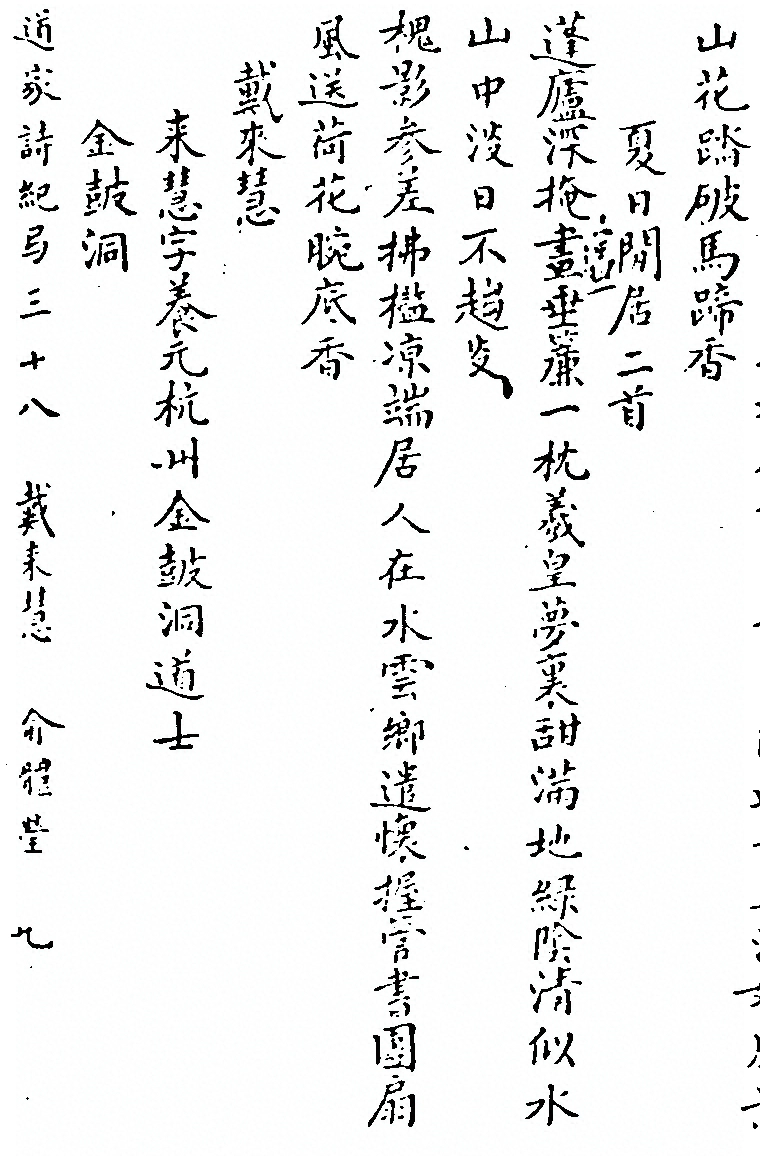 山花踏破馬蹄香
夏日閒居二首
蓬廬深掩晝垂簾一枕羲皇夢裏甜滿地綠陰清似水
山中淡日不趨炎
槐影參差拂檻凉端居人在水雲鄉遣懷握管書團扇
風送荷花腕底香
戴來慧
来慧字養元杭州金鼓洞道士
金鼓洞
道家詩紀号三十八 戴来慧 俞體瑩 九